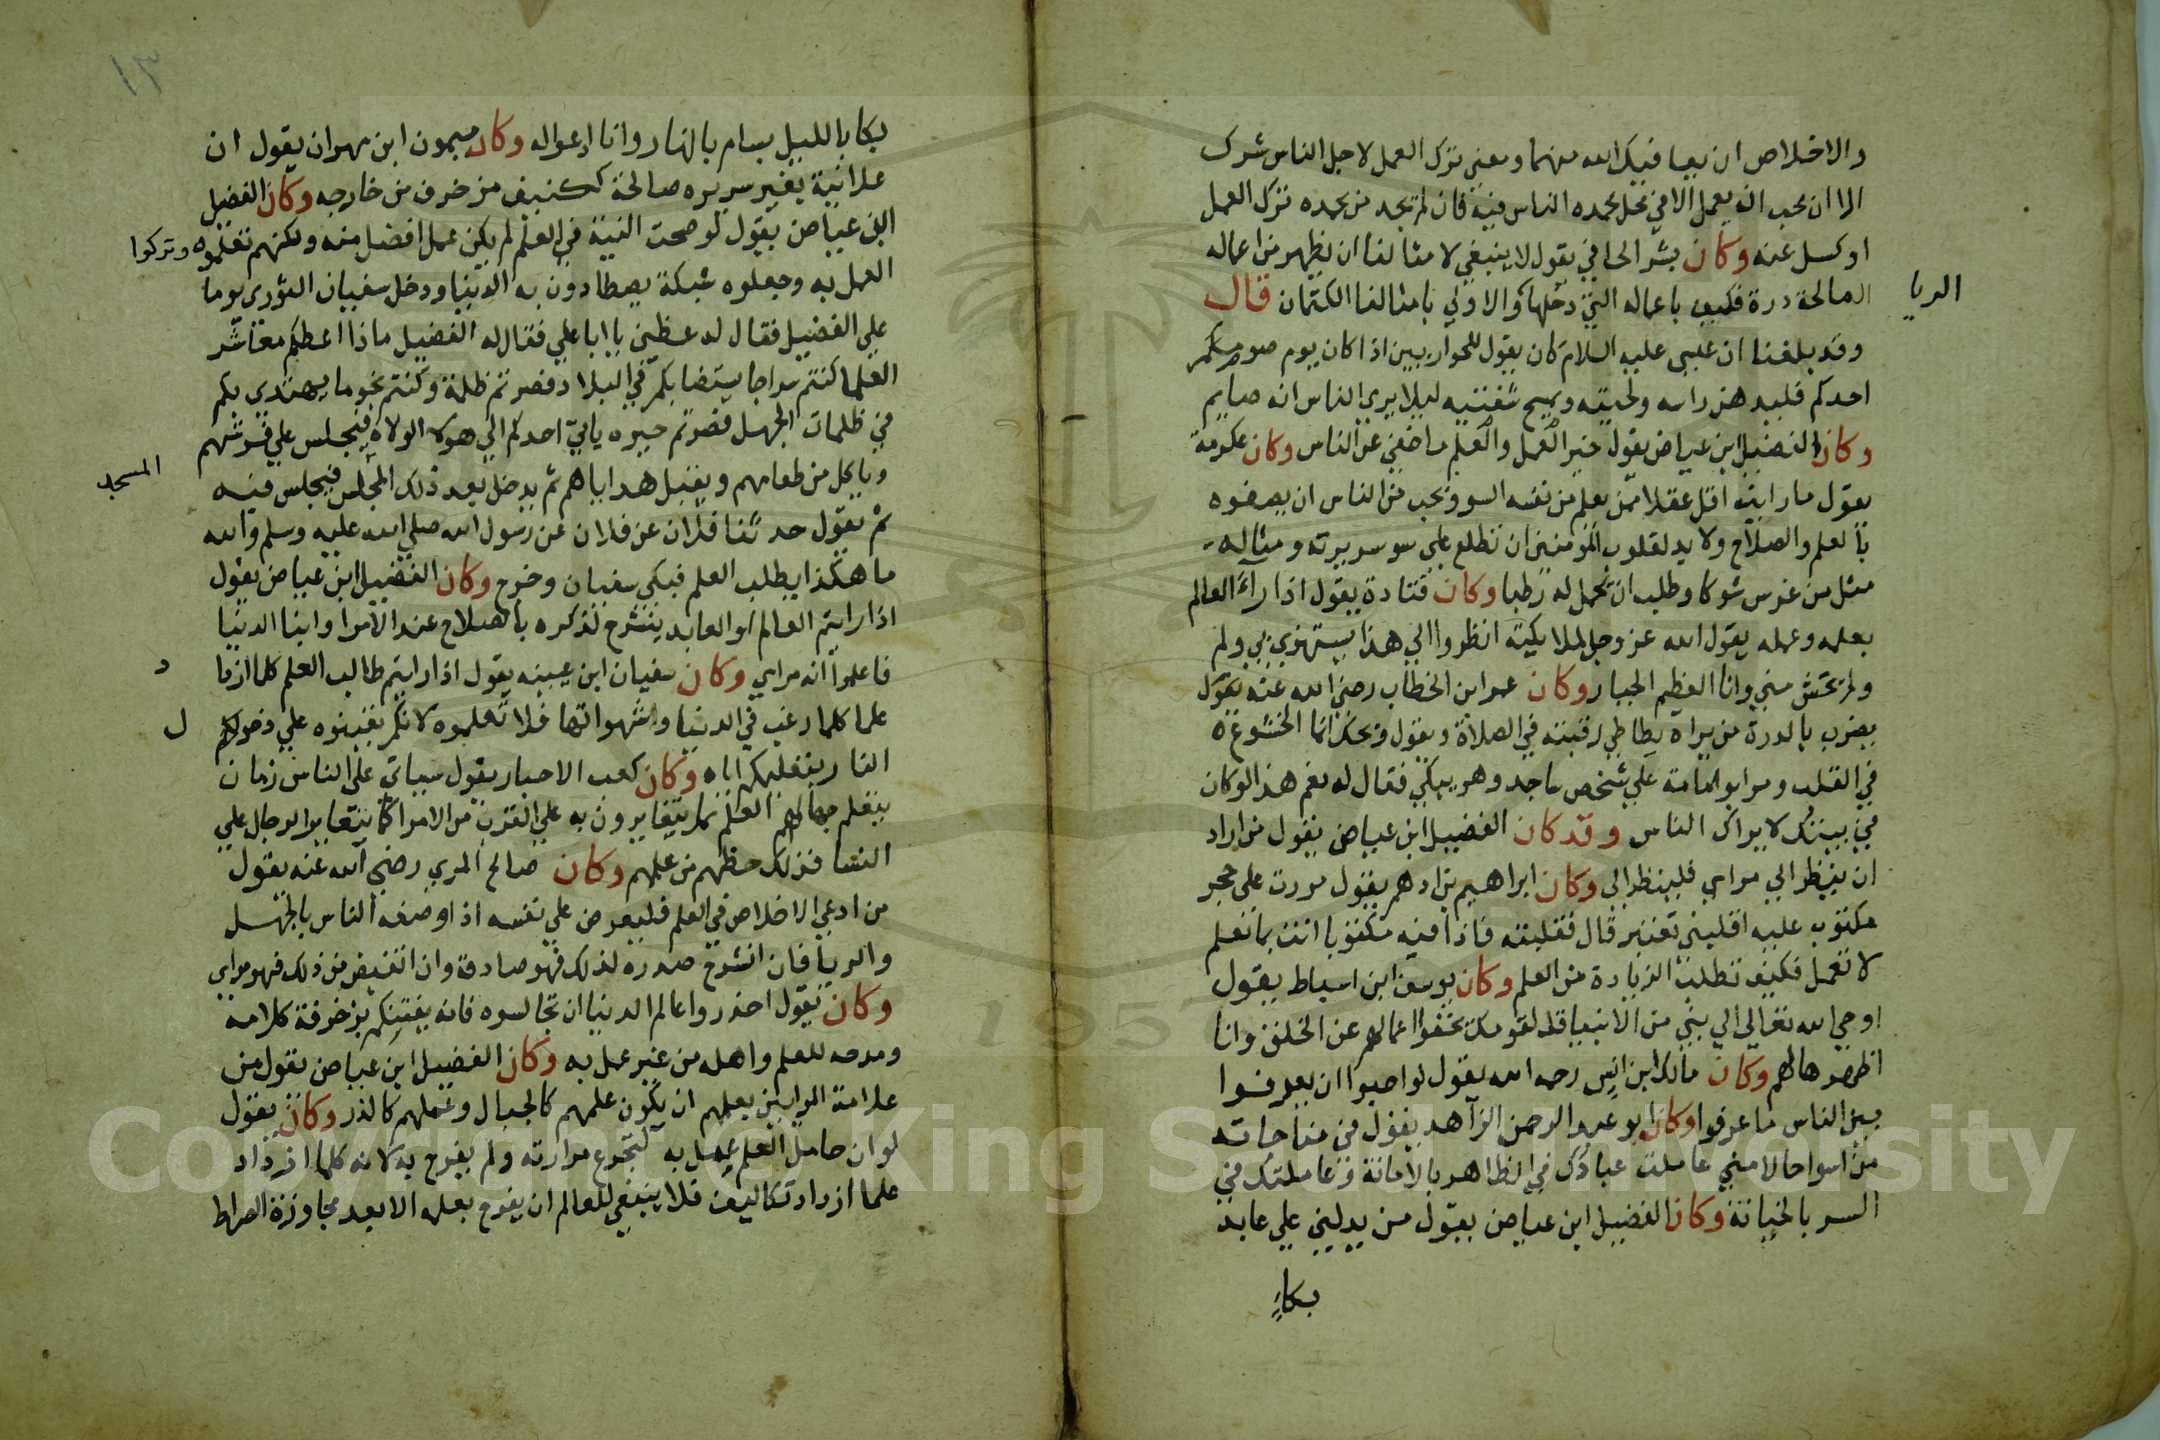 والاخلاص ان يعافيك الله منهما ومعنى ترك العمل لاجل الناس شرك
الا ان يحب ان يعمل الا في محل يحمده الناس فيه فان لم يجد من يحمده ترك العمل
او كسل عنه وكان بشر الحافي يقول لا ينبغي لامثالنا ان نظهر من اعماله
الصالحة ذرة فكيف باعماله التي دخلها والاولي بامثالنا الكتمان قال
الريا
وقد بلغنا ان عيسى عليه السلام كان يقول للحواريين اذا كان يوم صومكم
احدكم فليدهن راسه ولحيته ويمسح شفتيه ليلا يري الناس انه صايم
وكان الفضيل ابن عياض يقول خير العمل والعلم ما خفي عن الناس وكان عكرمة
يقول ما رايت اقل عقلا ممن يعلم من نفسه السو ويحب من الناس ان يصفوه
بالعلم والصلاح ولا بد لقلوب المومنين ان تطلع علي سو سريرته ومثاله
مثل من غرس شوكا وطلب ان يحمل له رطبا وكان قتادة يقول اذا راءَ العالم
بعلمه وعمله يقول الله عز وجل لملايكته انظروا الي هذا يستهزي بي ولم
ولم يخش مني وانا العظيم الجبار وكان عمر ابن الخطاب رضي الله عنه يقول
يضرب بالدرة من يراه يطاطي رقبته في الصلاة ويقول ويحك انما الخشوع
في القلب ومر ابو امامة علي شخص ساجد وهو يبكي فقال له نعم هذا لو كان
في بيتك لا يراك الناس وقد كان الفضيل ابن عياض يقول من اراد
ان ينظر الي مراي فلينظر الي وكان ابراهيم بن ادهم يقول مررت علي حجر
مكتوب عليه اقلبني تعتبر قال فقلبته فاذا فيه مكتوبا انت بما تعلم
لا تعمل فكيف تطلب الزيادة من العلم وكان يوسف ابن اسباط يقول
اوحي الله تعالي الي نبي من الانبيا قل لقومك يخفوا اعمالهم عن الخلق وانا
اظهرها لهم وكان مالك ابن انس رحمه الله يقول لو احبوا ان يعرفوا
بين الناس ما عرفوا وكان ابو عبد الرحمن الزاهد يقول في مناجاته
من اسوا حالا مني عاملت عبادك في الظاهر بالامانة وعاملتك في
السر بالخيانة وكان الفضيل ابن عياض يقول من يدلني علي عابد
بكاء
١٣
بكا بالليل بسام بالنهار وانا ادعو له وكان ميمون ابن مهران يقول ان
علانية بغير سريره صالحة ككنيف مزخرف من خارجه وكان الفضيل
ابن عياض يقول لو صحت النية في العلم لم يكن عمل افضل منه ولكنهم تعلموه وتركوا
العمل به وجعلوه شبكة يصطادون به الدنيا ودخل سفيان الثوري يوما
علي الفضيل فقال له عظني يا ابا علي فقال له الفضيل ماذا اعظكم معاشر
العلما كنتم سراجا يستضا بكم في البلاد فصرتم ظلمة وكنتم نجوما يهتدي بكم
في ظلمات الجهل فصرتم حيره ياتي احدكم الي هولا الولاة فيجلس علي فرشهم
وياكل من طعامهم ويقبل هداياهم ثم يدخل بعد ذلك المجلس فيجلس فيه
المسجد
ثم يقول حدثنا فلان عن فلان عن رسول الله صلي الله عليه وسلم والله
ما هكذا يطلب العلم فبكي سفيان وخرج وكان الفضيل ابن عياض يقول
اذا رايتم العالم او العابد ينشرح لذكره بالصلاح عند الامرا وابنا الدنيا
فاعلموا انه مراي وكان سفيان ابن عيينه يقول اذا رايتم طالب العلم كلما ازدا
د
علما كلما رغب في الدنيا وشهواتها فلا تعلموه لانكم تعينوه علي دخول
ل
النار بتعليمكم اياه وكان كعب الاحبار يقول سياتي علي الناس زمان
يتعلم جهالهم العلم ثم يتغايرون به علي القرب من الامرا كما يتغاير الرجال علي
النسا فذلك حظهم من علمهم وكان صالح المري رضي الله عنه يقول
من ادعي الاخلاص في العلم فليعرض علي نفسه اذا وصفه الناس بالجهل
والريا فان انشرح صدره لذلك فهو صادق وان انقبض من ذلك فهو مراي
وكان يقول احذروا عالم الدنيا ان تجالسوه فانه يفتنكم بزخرفة كلامه
ومدحه للعلم واهله من غير عمل به وكان الفضيل ابن عياض يقول من
علامة المرايين بعلمهم ان يكون علمهم كالجبال وعملهم كالذر وكان يقول
لو ان حامل العلم عمل به لتجرع مرارته ولم يفرح به لانه كلما ازداد
علما ازداد تكاليف فلا ينبغي للعالم ان يفرح بعلمه الا بعد مجاوزة الصراط
Copyright © King Saud University
1957